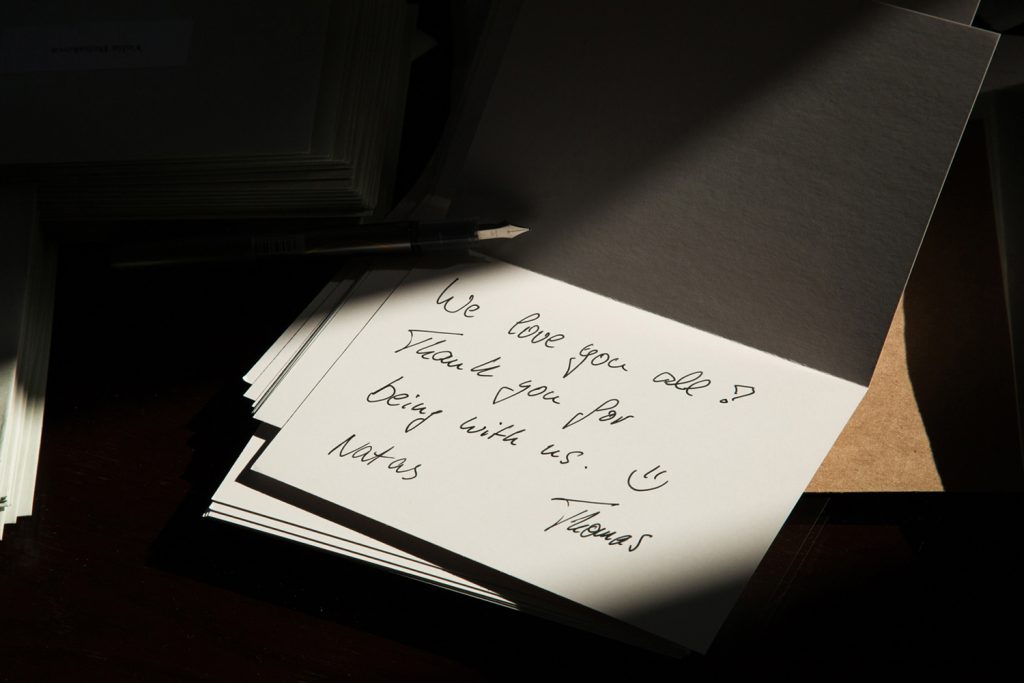 We love you all ?
Thank you for
being with us. 
Natas
Thomas